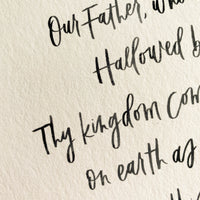 Our Father, who
Hallowed b
Thy kingdom com
on earth as